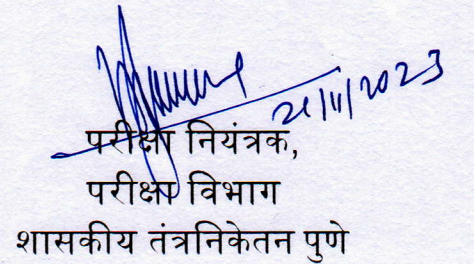 21/11/2023
परीक्षा नियंत्रक,
परीक्षा विभाग
शासकीय तंत्रनिकेतन पुणे